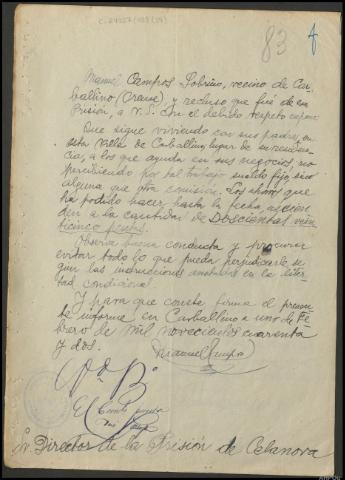 C-21927/103 (34)
83
Manuel Campos Sobrino, vecino de Car-
ballino (Orense), y recluso que fué de esa
Prisión, a V.S. con el debido respeto expone
Que sigue viviendo con sus padres, en
esta Villa de Carballino, lugar de su residen-
cia, a los que ayuda en sus negocios, no
percibiendo por tal trabajo sueldo fijo, sino
alguna que otra comisión. Los ahorros que
ha podido hacer hasta la fecha, ascien-
den a la cantidad de Doscientas vein-
ticinco pesetas.
Observa buena conducta y procura
evitar todo lo que pueda perjudicarle, se-
gún las instrucciones en la liber-
tad condicional
Y para que conste firma el presen-
te informe en Carballino a uno de Fe-
brero de mil novecientos cuarenta
y dos.
Manuel Campos
Vº Bº
El
Sr. Director de la Prisión de Celanova